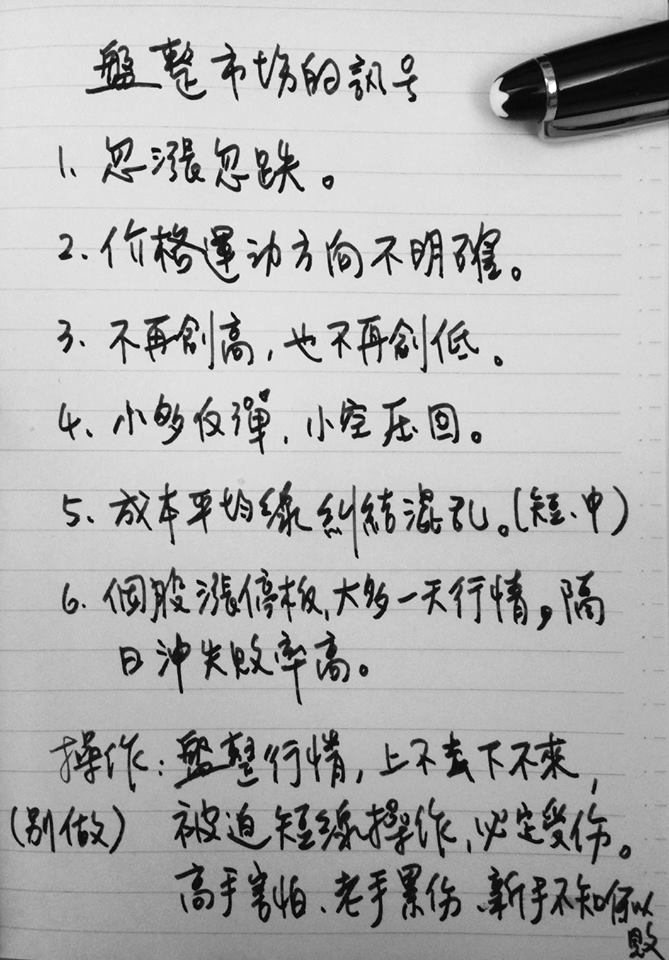 盤整市场的訊号
1、忽漲忽跌。
2、价格運动方向不明確。
3、不再創高,也不再創低。
4、小多反彈、小空压回。
5、成本平均線糾結混乱。(短、中)
6、個股漲停板,大多一天行情,隔
日沖失敗率高。
操作:盤整行情,上不去下不來,
(别做) 被迫短線操作,必定受伤。
高手害怕、老手累伤、新手不知何以
敗